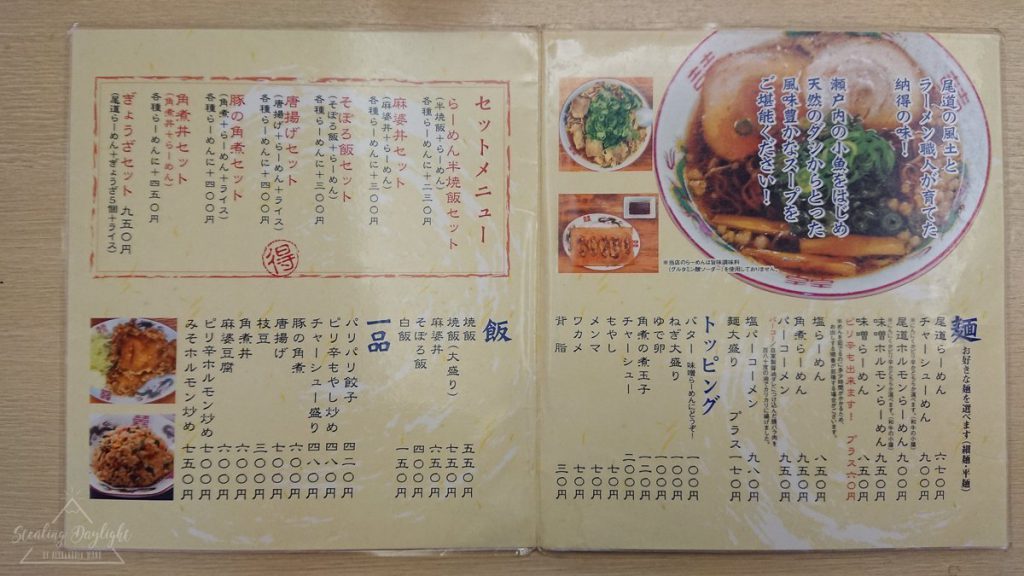 尾道の風土と
ラーメン職人が育てた
納得の味！
瀬戸内の小魚をはじめ
天然のダシからとった
風味豊かなスープを
ご堪能ください！
※当店のらーめんは旨味調味料
(グルタミン酸ソーダー)を使用しておりません。
麺 お好きな麺を選べます(細麺・平麺)
尾道らーめん 六七〇円
チャーシューめん 九〇〇円
尾道ホルモンらーめん 九〇〇円
味噌ホルモンらーめん 九五〇円
味噌らーめん 八五〇円
ピリ辛も出来ます！ プラス六〇円
塩らーめん 八五〇円
角煮らーめん 九五〇円
パーコーメン 九五〇円
塩パーコーメン 九八〇円
麺大盛り プラス一七〇円
トッピング
バター 味噌らーめんにどうぞ！ 一〇〇円
ねぎ大盛り 一七〇円
ゆで卵 一〇〇円
角煮の煮玉子 一二〇円
チャーシュー 二〇〇円
もやし 一〇〇円
メンマ 一七〇円
ワカメ 一七〇円
背脂 三〇円
セットメニュー
らーめん半焼飯セット
(半焼飯+らーめん)
各種らーめんに+二三〇円
麻婆丼セット
(麻婆丼+らーめん)
各種らーめんに+三〇〇円
そぼろ飯セット
(そぼろ飯+らーめん)
各種らーめんに+三〇〇円
唐揚げセット
(唐揚げ+らーめん+ライス)
各種らーめんに+四〇〇円
豚の角煮セット
(角煮+らーめん+ライス)
各種らーめんに+四〇〇円
角煮丼セット
(角煮丼+らーめん)
各種らーめんに+四五〇円
ぎょうざセット
(尾道らーめん+ぎょうざ5個+ライス) 九五〇円
得
飯
焼飯 五五〇円
焼飯(大盛り) 七五〇円
麻婆丼 六五〇円
そぼろ飯 四〇〇円
白飯 一五〇円
一品
パリパリ餃子 四二〇円
ピリ辛もやし炒め 四八〇円
チャーシュー盛り 四八〇円
豚の角煮 七〇〇円
唐揚げ 七〇〇円
枝豆 三〇〇円
角煮丼 六〇〇円
麻婆豆腐 六〇〇円
ピリ辛ホルモン炒め 七〇〇円
みそホルモン炒め 七五〇円
Stealing Daylight
BY ALEXANDRIA WANG